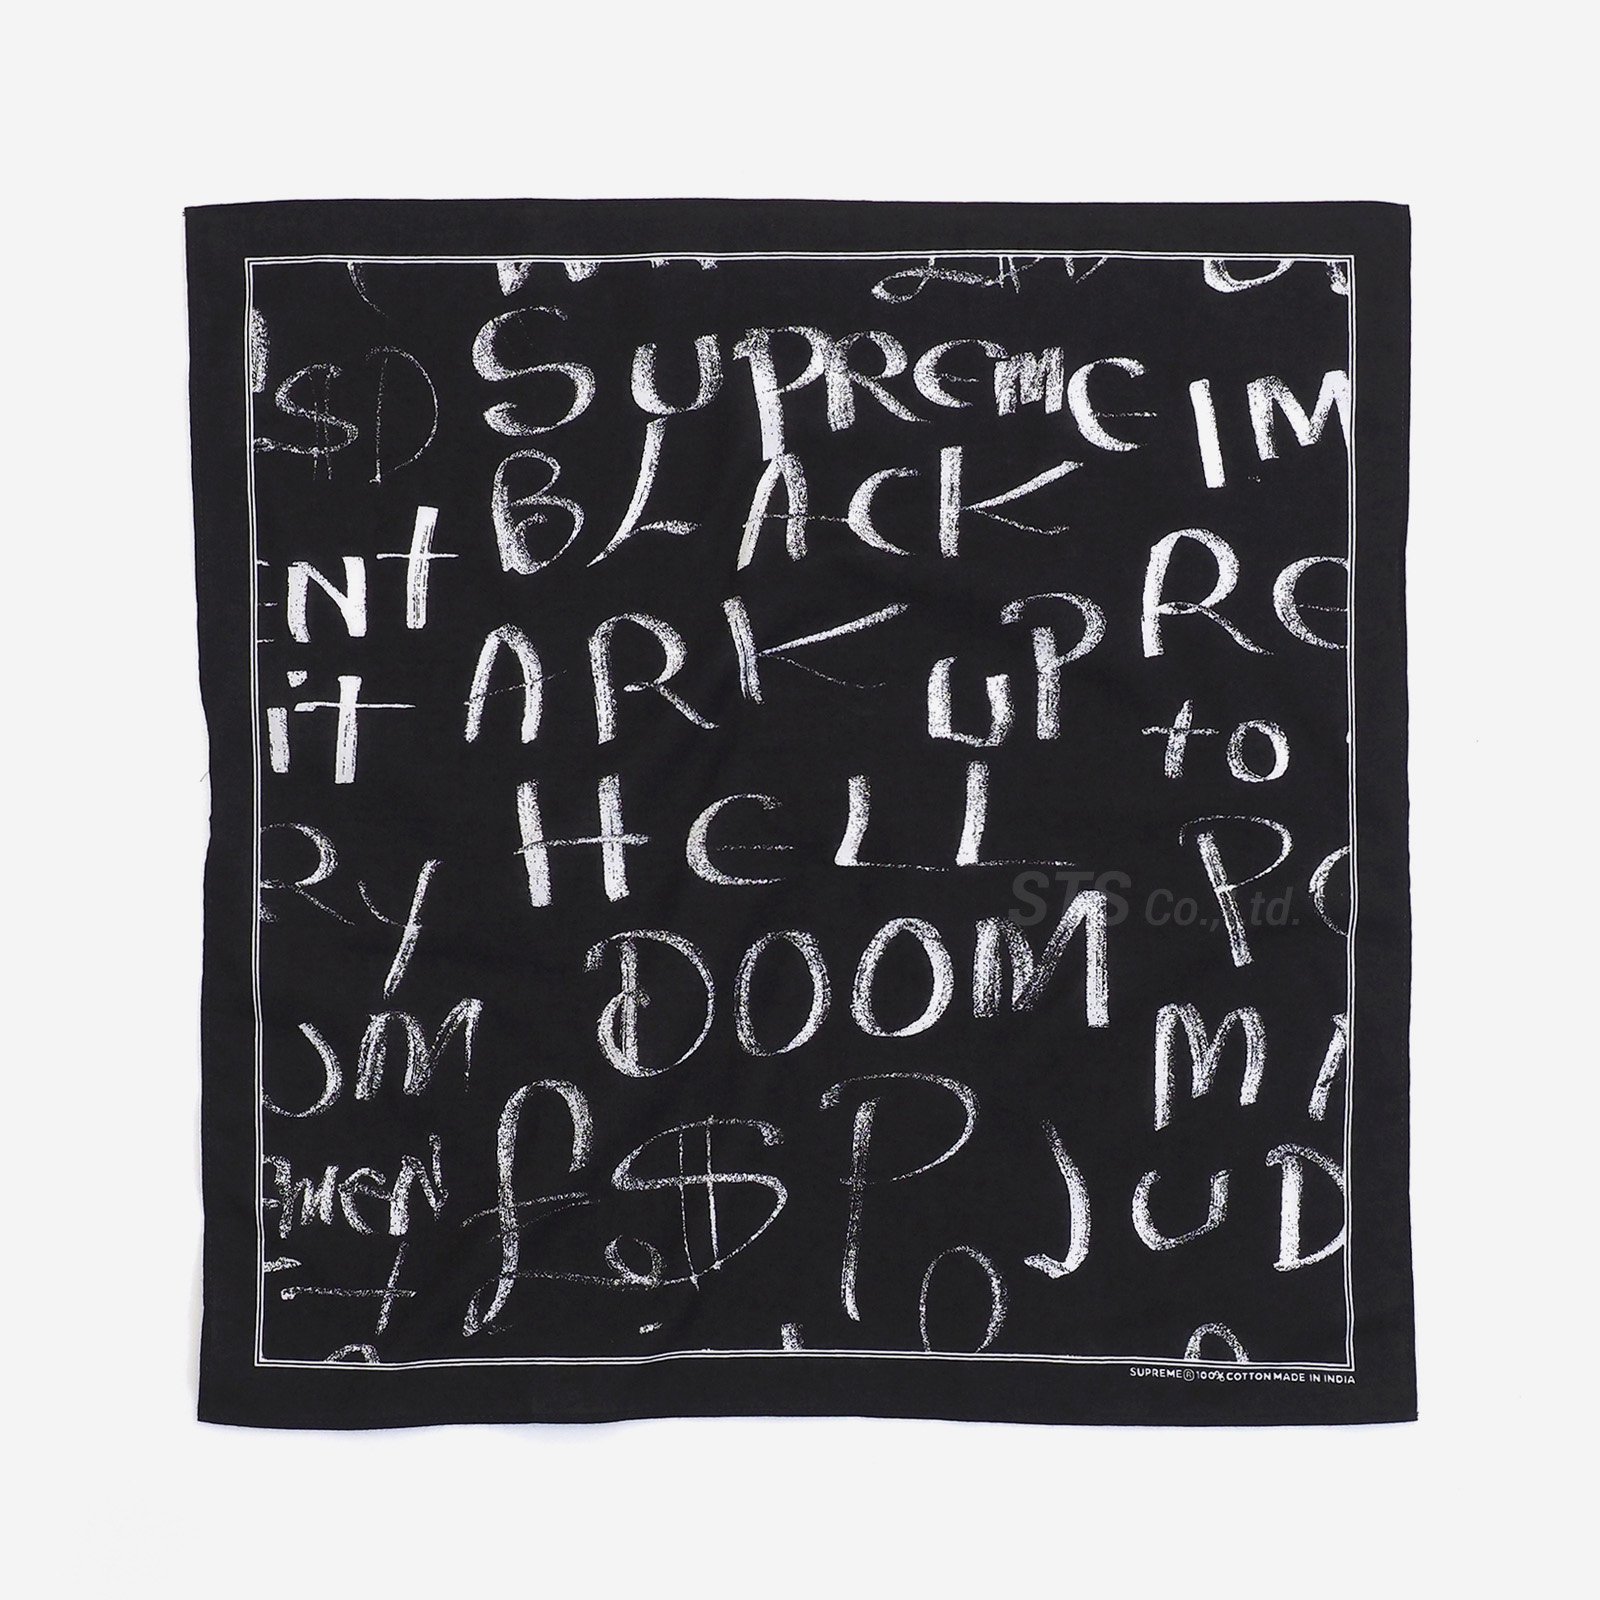 $D SUPREME IM
BLACK
Nt RE
ARK UP
it to
HELL
RY P
DOOM
OM M
£$P JUD
MEN
t
SUPREME® 100% COTTON MADE IN INDIA
STS Co., Ltd.